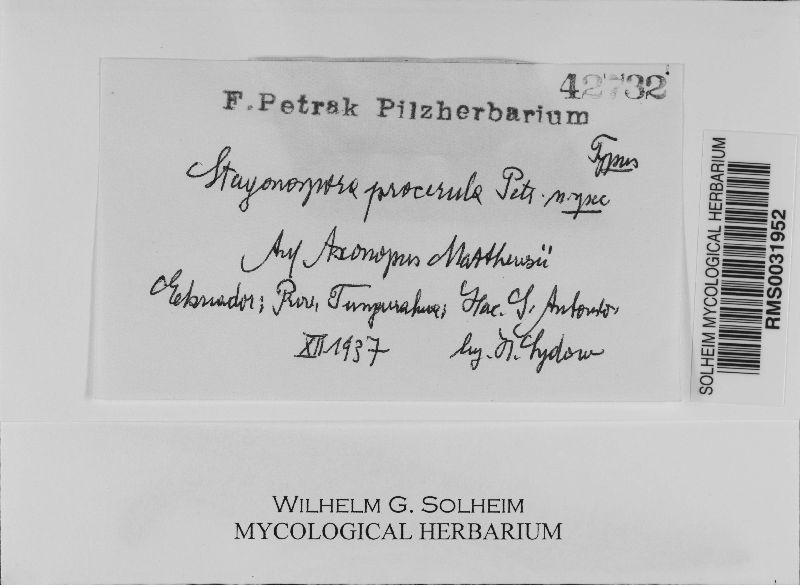 42732
F. Petrak Pilzherbarium
Typus
Stagonospora procerula Petr. n. spec
Auf Axonopus Matthewsii
Eckuador; Prov. Tungurahua; Hac. S. Antonio
XII 1937 leg. H. Sydow
SOLHEIM MYCOLOGICAL HERBARIUM
RMS0031952
WILHELM G. SOLHEIM
MYCOLOGICAL HERBARIUM